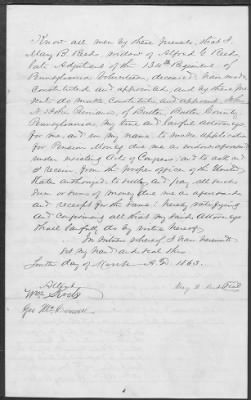 Know all men by these presents, that I,
Mary B. Reed, widow of Alfred G. Reed
late Adjutant of the 134th Regiment of
Pennsylvania Volunteers, deceased, have made
Constituted and appointed, and by these pre
sents do make, Constitute and appoint, John
N. of Butler, Butler County
Pennsylvania, my true and lawful Attorney
for me, and in my name to make application
for Pension Money due me as
under existing Acts of Congress; and to ask and
Receive from the proper office of the United
States authorized to settle and pay all such
sum or sums of money due me as aforesaid
and receipt for the same: hereby ratifying
and Confirming all that my said Attorney
shall lawfully do by virtue hereof.
In witness whereof I have hereunto
set my hand and seal this
tenth day of March A.D. 1863.
Attest
Mary B. Reed Seal
Wm
Geo